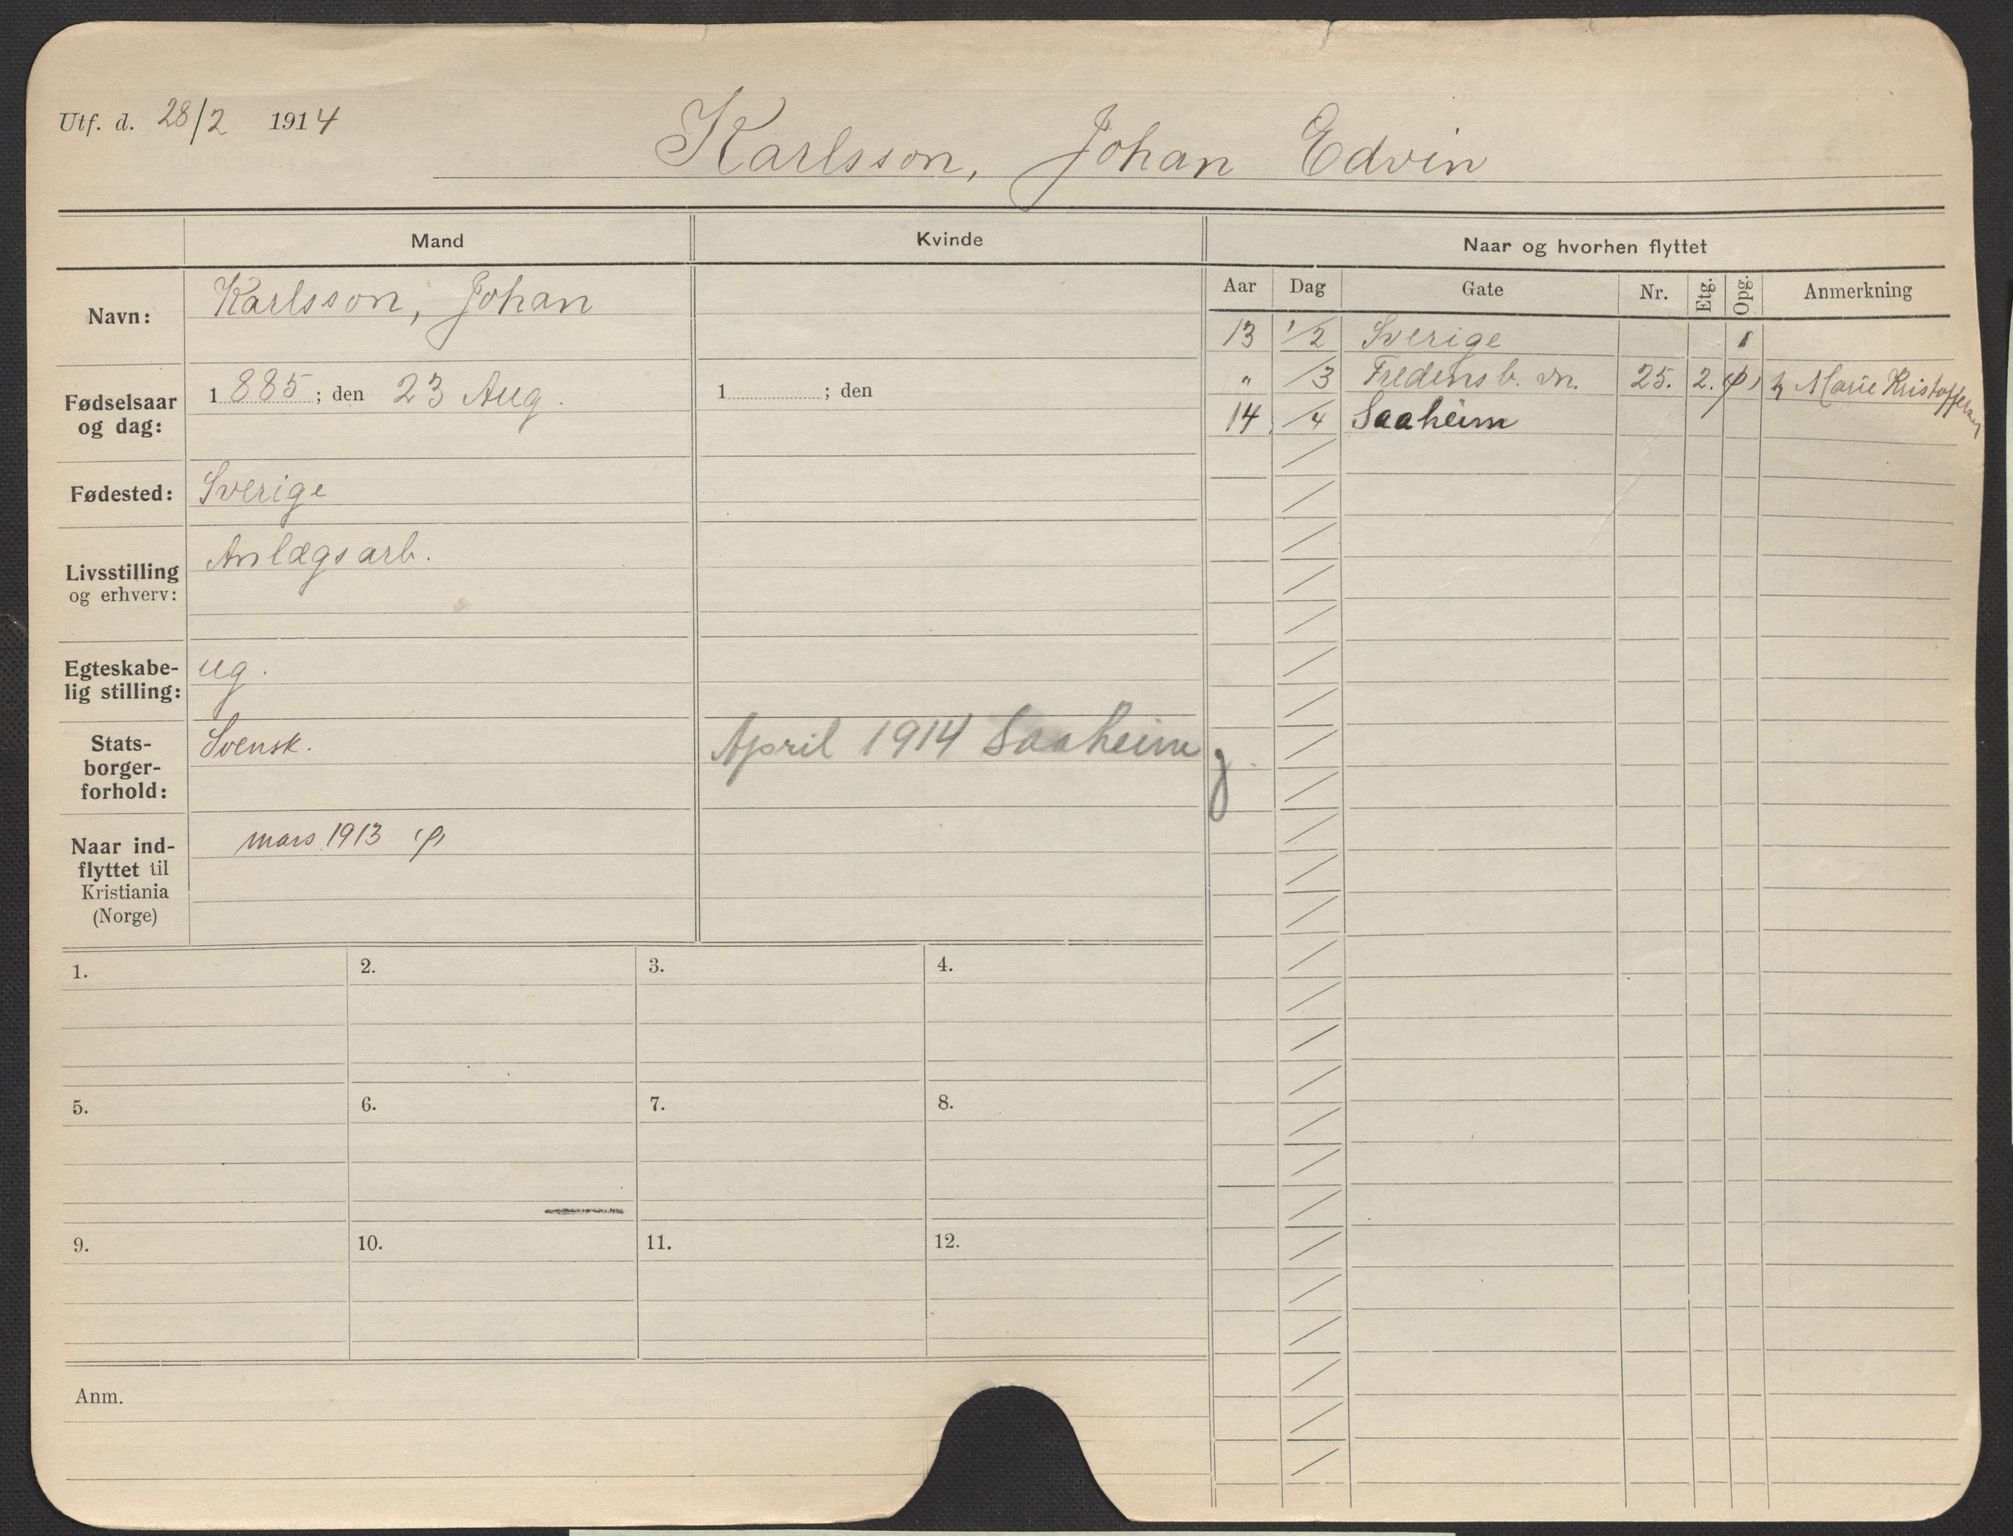 Utf. d. 28/2 1914
Karlsson, Johan Edvin
Mand
Kvinde
Naar og hvorhen flyttet
Aar Dag Gate Nr. Etg. Opg. Anmerkning
Navn: Karlsson, Johan
Fødselsaar og dag: 1885; den 23 Aug.
1 ; den
Fødested: Sverige
Livsstilling og erhverv: Anlægsarb.
Egteskabe-
lig stilling: ug.
Stats-
borger-
forhold: Svensk.
April 1914 Saaheim
Naar ind-
flyttet til
Kristiania
(Norge)
mars 1913
13 1/2 Sverige
" /3 Fredensb. vn. 25. 2. Marie Kristoffersen
14 /4 Saaheim
1. 2. 3. 4.
5. 6. 7. 8.
9. 10. 11. 12.
Anm.